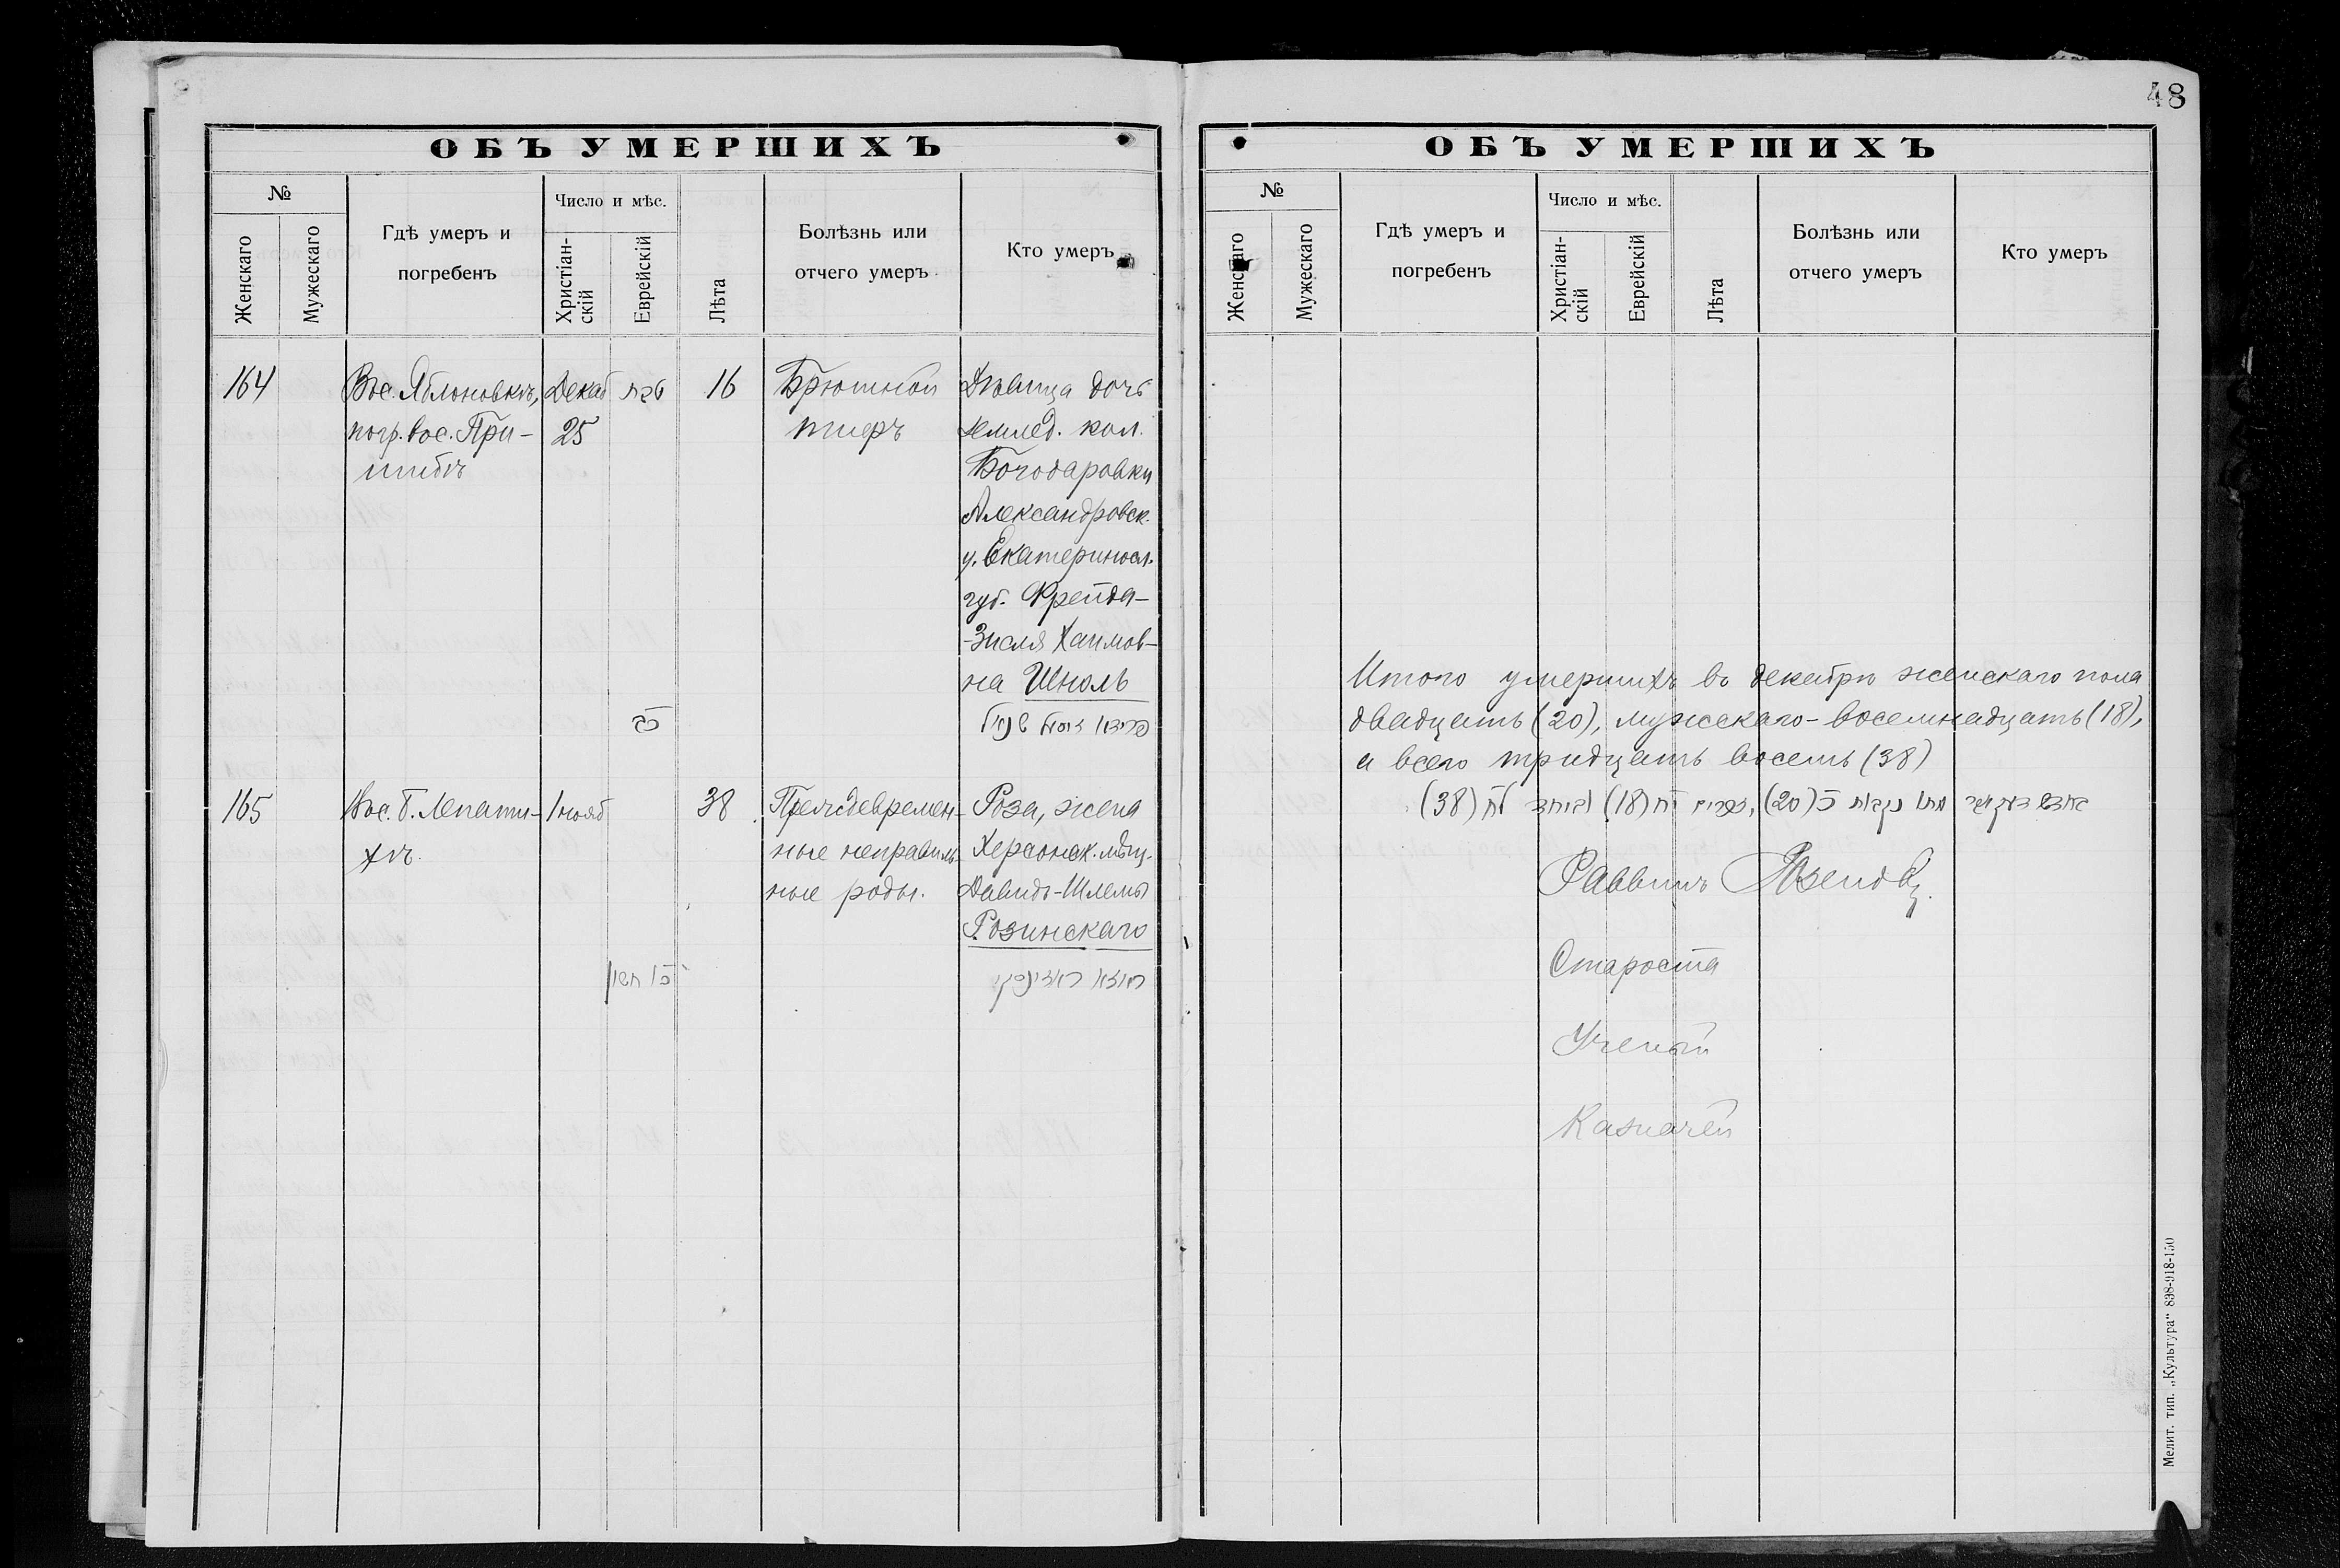 48
ОБЪ УМЕРШИХЪ
№
Женскаго
Мужескаго
Гдѣ умеръ и
погребенъ
Число и мѣс.
Христіан-
скій
Еврейскій
Лѣта
Болѣзнь или
отчего умеръ
Кто умеръ
164
Въ с. Яблоновкѣ,
погр. в ос. При-
шибѣ
Декаб
25
טבת
כ
16
Брюшной
тифъ
Дѣвица дочь
землед. кол.
Богодаровки
Александровск.
у. Екатериносл.
губ. Фрейда-
-Зисля Хаимов-
на Школь
165
Въ с. Б. Лепати-
хѣ.
1 нояб
חשון
38
Преждевремен-
ные неправиль-
ные роды.
Роза, жена
Херсонск. мѣщ.
Давидъ-Шлемы
Розинскаго
ראזא ראזינסקי
ОБЪ УМЕРШИХЪ
№
Женскаго
Мужескаго
Гдѣ умеръ и
погребенъ
Число и мѣс.
Христіан-
скій
Еврейскій
Лѣта
Болѣзнь или
отчего умеръ
Кто умеръ
Итого умершихъ въ декабрѣ женскаго пола
двадцать (20), мужескаго - восемнадцать (18),
а всего тридцать восемь (38)
דעקאבר מתו נקבות כ (20), זכרים יח (18) וביחד לח (38)
Раввинъ
Староста
Ученый
Казначей
Мелит. тип. „Культура" 838-918-150